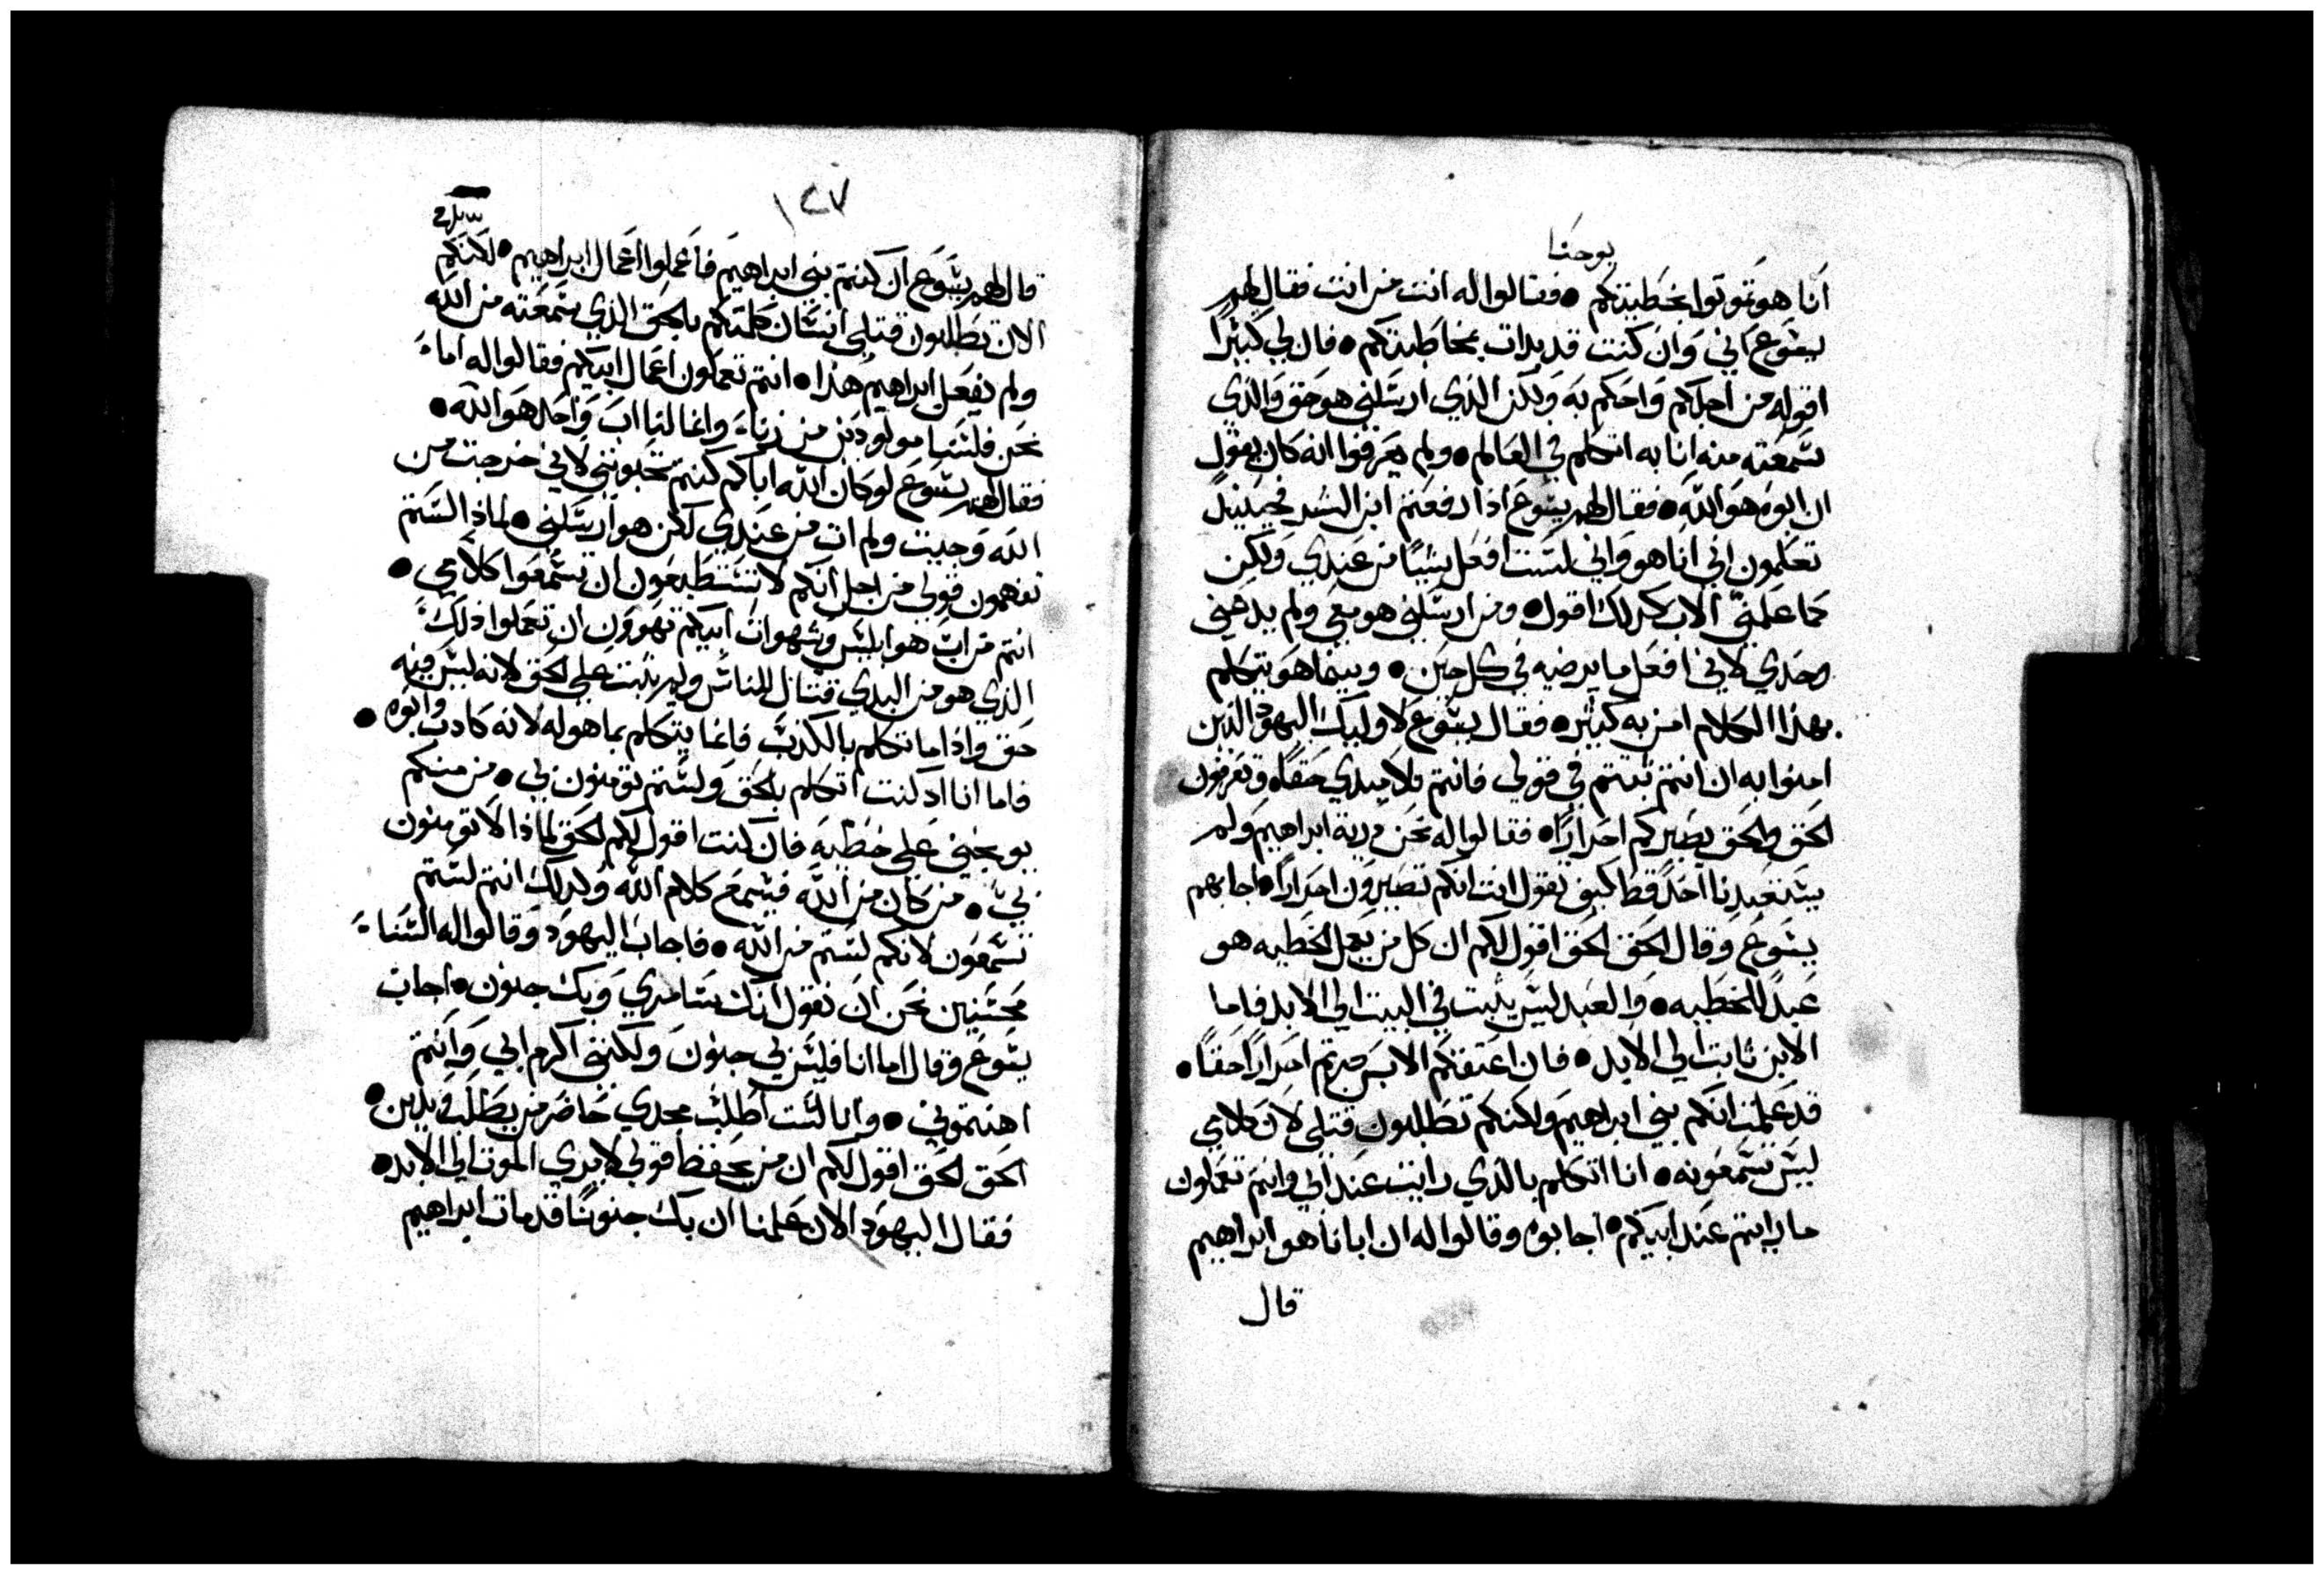 يوحنا
انا هو تموتوا بخطيتكم • فقالوا له انت من انت فقال لهم
يشوع اني وان كنت قد بدات بمخاطبتكم • فان لي كثيرا
اقوله من اجلكم واحكم به ولكن الذي ارسلني هو حق والذي
سمعته منه انا به اتكلم في العالم • ولم يعرفوا انه كان يقول
ان ابوه هو الله • فقال لهم يشوع اذا رفعتم ابن البشر فحينيذ
تعلمون اني انا هو واني لست افعل شيئا من عندي ولكن
كما علمني الاب كدلك اقول • ومن ارسلني هو معي ولم يدعني
وحدي لاني افعل ما يرضيه في كل حين • وبينما هو يتكلم
بهذا الكلام امن به كثير • فقال يشوع لاوليك اليهود الذين
امنوا به ان انتم ثبتم في قولي فانتم تلاميدي حقا • وتعرفون
الحق والحق يصيركم احرارا • فقالوا له نحن درية ابراهيم ولم
يستعبدنا احد قط كيف تقول انت انكم تصيرون احرارا • اجابهم
يشوع وقال الحق الحق اقول لكم ان كل من يعمل الخطيه هو
عبد للخطيه • والعبد ليس يثبت في البيت الي الابد فاما
الابن ثابت الي الابد • فان اعتقكم الابن صرتم احرارا حقا •
قد علمت انكم بني ابراهيم ولكنكم تطلبون قتلي لان كلامي
ليس تسمعونه • انا اتكلم بالذي رايت عند ابي وانتم تعملون
ما رايتم عند ابيكم • اجابوه وقالوا له ان ابانا هو ابراهيم
قال
١٢٧
قال لهم يشوع ان كنتم بني ابراهيم فاعملوا اعمال ابراهيم • لكنكم
الان تطلبون قتلي انسان كلمتكم بالحق الذي سمعته من الله
ولم يفعل ابراهيم هذا • انتم تعملون اعمال ابيكم فقالوا له اما
نحن فلسنا مولودين من زناء وانما لنا اب واحد هو الله •
فقال لهم يشوع لو كان الله اباكم كنتم تحبونني لاني خرجت من
الله وجيت ولم ات من عندي لكن هو ارسلني • لماذا لستم
تفهمون قولي من اجل انكم لا تستطيعون ان تسمعوا كلامي •
انتم من اب هو ابليس وشهوات ابيكم تهوون ان تعملوا ذلك
الذي هو من البدي قتال للناس ولم يثبت علي الحق لانه ليس فيه
حق واذا ما تكلم بالكذب فانما يتكلم بما هو له لانه كادب وابوه •
فاما انا اد كنت اتكلم بالحق ولستم تومنون بي • من منكم
يوبخني علي خطيه فان كنت اقول لكم الحق لماذا لا تومنون
بي • من كان من الله فيسمع كلام الله ولدلك انتم لستم
تسمعون لانكم لستم من الله • فاجاب اليهود وقالوا له السنا
محسنين نحن ان نقول انك سامري وبك جنون • اجاب
يشوع وقال اما انا فليس بي جنون ولكنني اكرم ابي وانتم
اهنتموني • وانا لست اطلب مجدي حاضر من يطلب ويدين •
الحق الحق اقول لكم ان من يحفظ قولي لا يري الموت الي الابد •
فقال اليهود الان علمنا ان بك جنونا قد مات ابراهيم